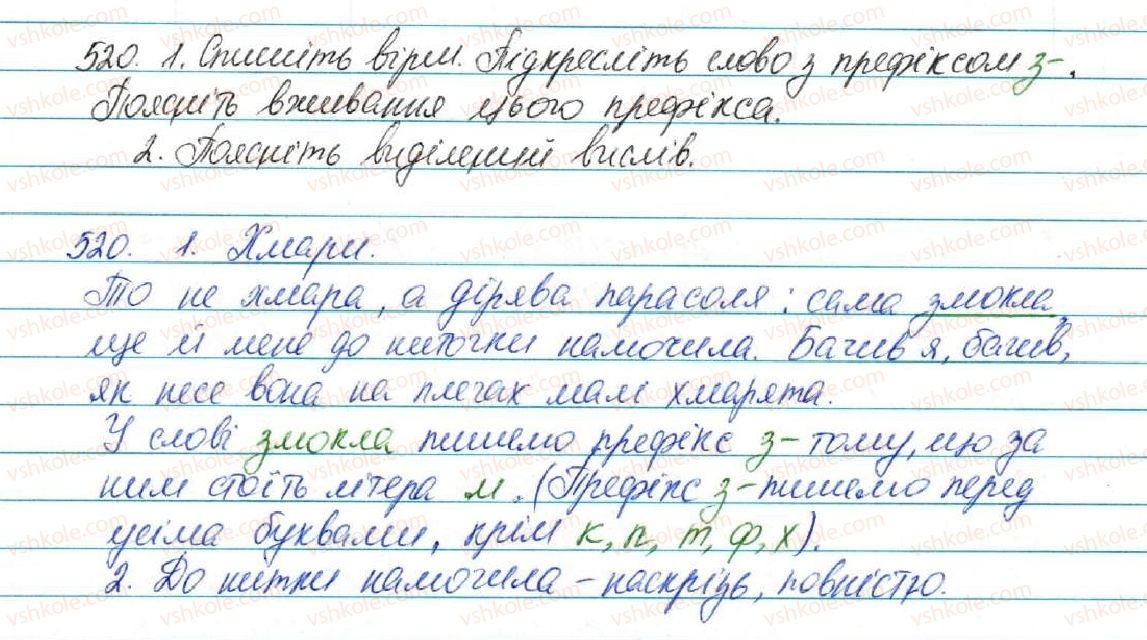 520. 1. Спишіть вірш. Підкресліть слово з префіксом з-.
Поясніть вживання цього префікса.
2. Поясніть виділений вислів.
520. 1. Хмари.
То не хмара, а дірява парасоля: сама змокла,
ще й мене до ниточки намочила. Бачив я, бачив,
як несе вона на плечах мам хмарята.
У слові змокла пишемо префікс з- тому, що за
ним стоїть літера м. (Префікс з- пишемо перед
усіма буквами, крім к, п, т, ф, х).
2. До нитки намочила - наскрізь, повністю.